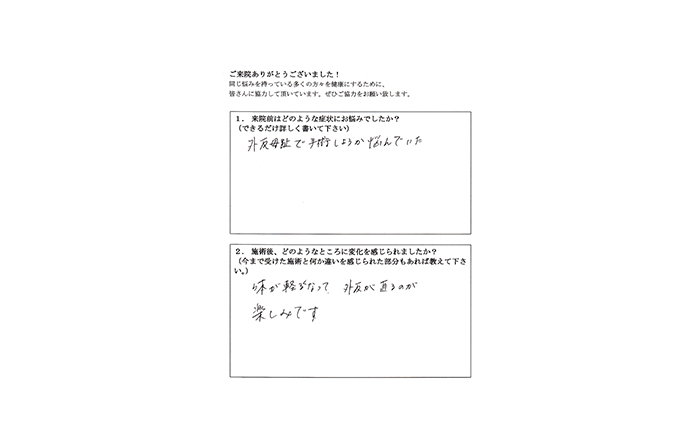 ご来院ありがとうございました！
同じ悩みを持っている多くの方々を健康にするために、
皆さんに協力して頂いています。ぜひご協力をお願い致します。
１．来院前はどのような症状にお悩みでしたか？
（できるだけ詳しく書いて下さい）
外反母趾で手術しようか悩んでいた
２．施術後、どのようなところに変化を感じられましたか？
（今まで受けた施術と何か違いを感じられた部分もあれば教えて下さ
い。）
体が軽くなって 外反が直るのが
楽しみです